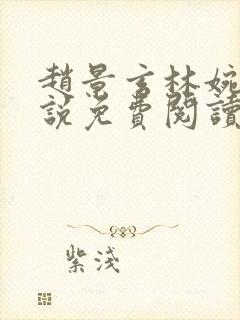 趙景言林婉
說免費閱讀
紫淺